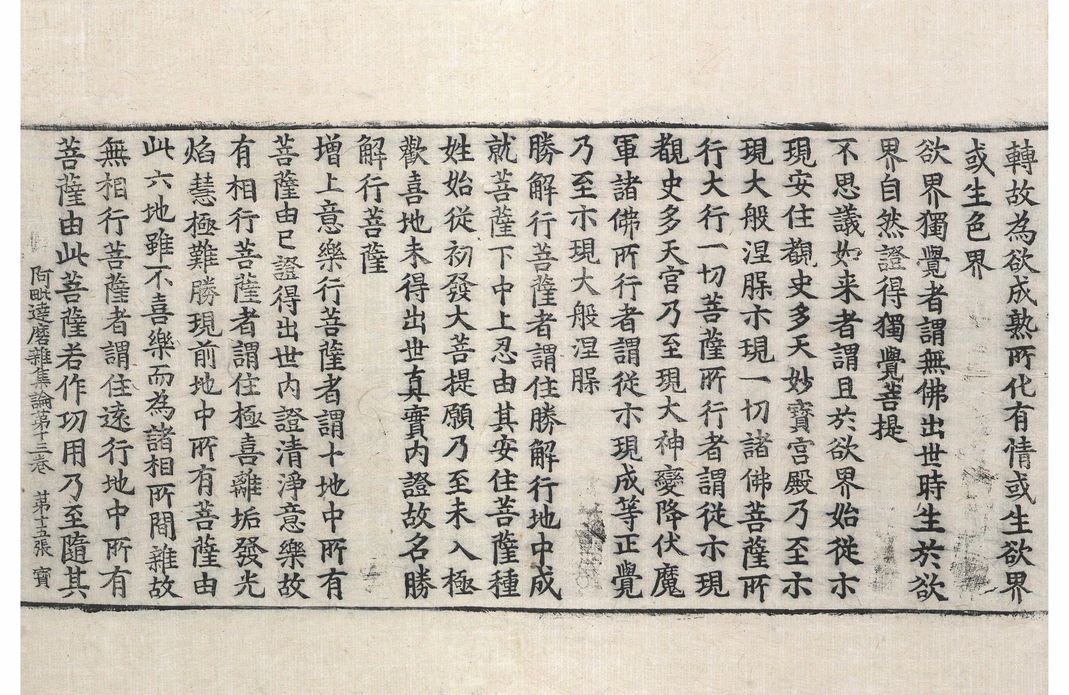 轉故為欲成熟所化有情或生欲界
或生色界
欲界獨覺者謂無佛出世時生於欲
界自然證得獨覺菩提
不思議如来者謂且於欲界始從示
現安住覩史多天妙寶宮殿乃至示
現大般涅槃示現一切諸佛菩薩所
行大行一切菩薩所行者謂從示現
覩史多天宮乃至現大神變降伏魔
軍諸佛所行者謂從示現成等正覺
乃至示現大般涅槃
勝解行菩薩者謂住勝解行地中成
就菩薩下中上忍由其安住菩薩種
姓始從初發大菩提願乃至未入極
歡喜地未得出世真實內證故名勝
解行菩薩
增上意樂行菩薩者謂十地中所有
菩薩由已證得出世內證清淨意樂故
有相行菩薩者謂住極喜離垢發光
焰慧極難勝現前地中所有菩薩由
此六地雖不喜樂而為諸相所間雜故
無相行菩薩者謂住遠行地中所有
菩薩由此菩薩若作功用乃至隨其
阿毗達磨雜集論第十三卷 第十五張 寶